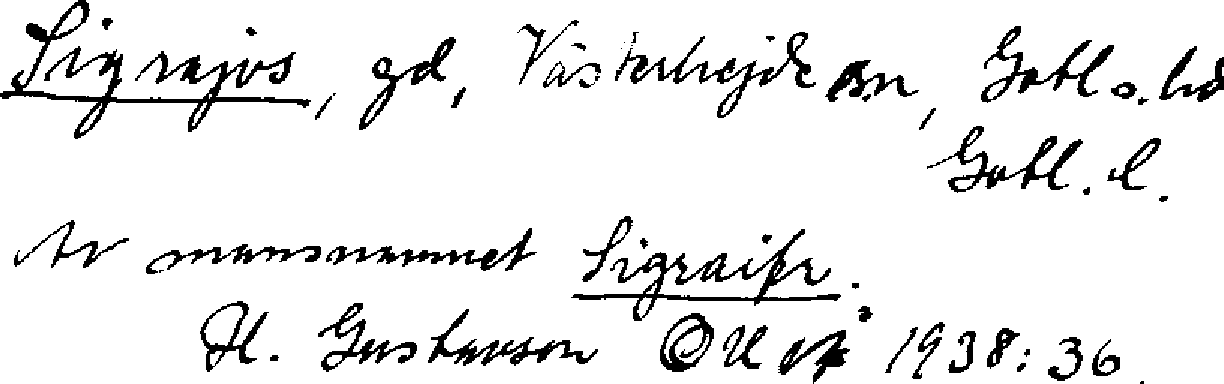 Sigrajvs, gd, Västerhejde sn, Gotl. s. hd
Gotl. l.
Av mansnamnet Sigraifr.
H. Gustavson 1938:36.